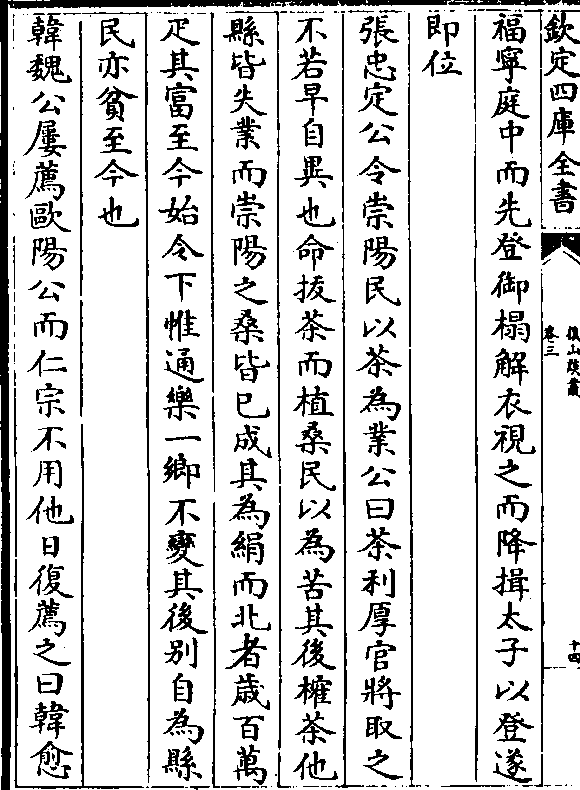 欽定四庫全書
後山談叢
卷三
十四
福寧庭中而先登御榻解衣視之而降揖太子以登遂
即位
張忠定公令崇陽民以茶為業公曰茶利厚官將取之
不若早自異也命拔茶而植桑民以為苦其後榷茶他
縣皆失業而崇陽之桑皆已成其為絹而北者歲百萬
疋其富至今始令下惟通樂一鄉不變其後别自為縣
民亦貧至今也
韓魏公屢薦歐陽公而仁宗不用他日復薦之曰韓愈